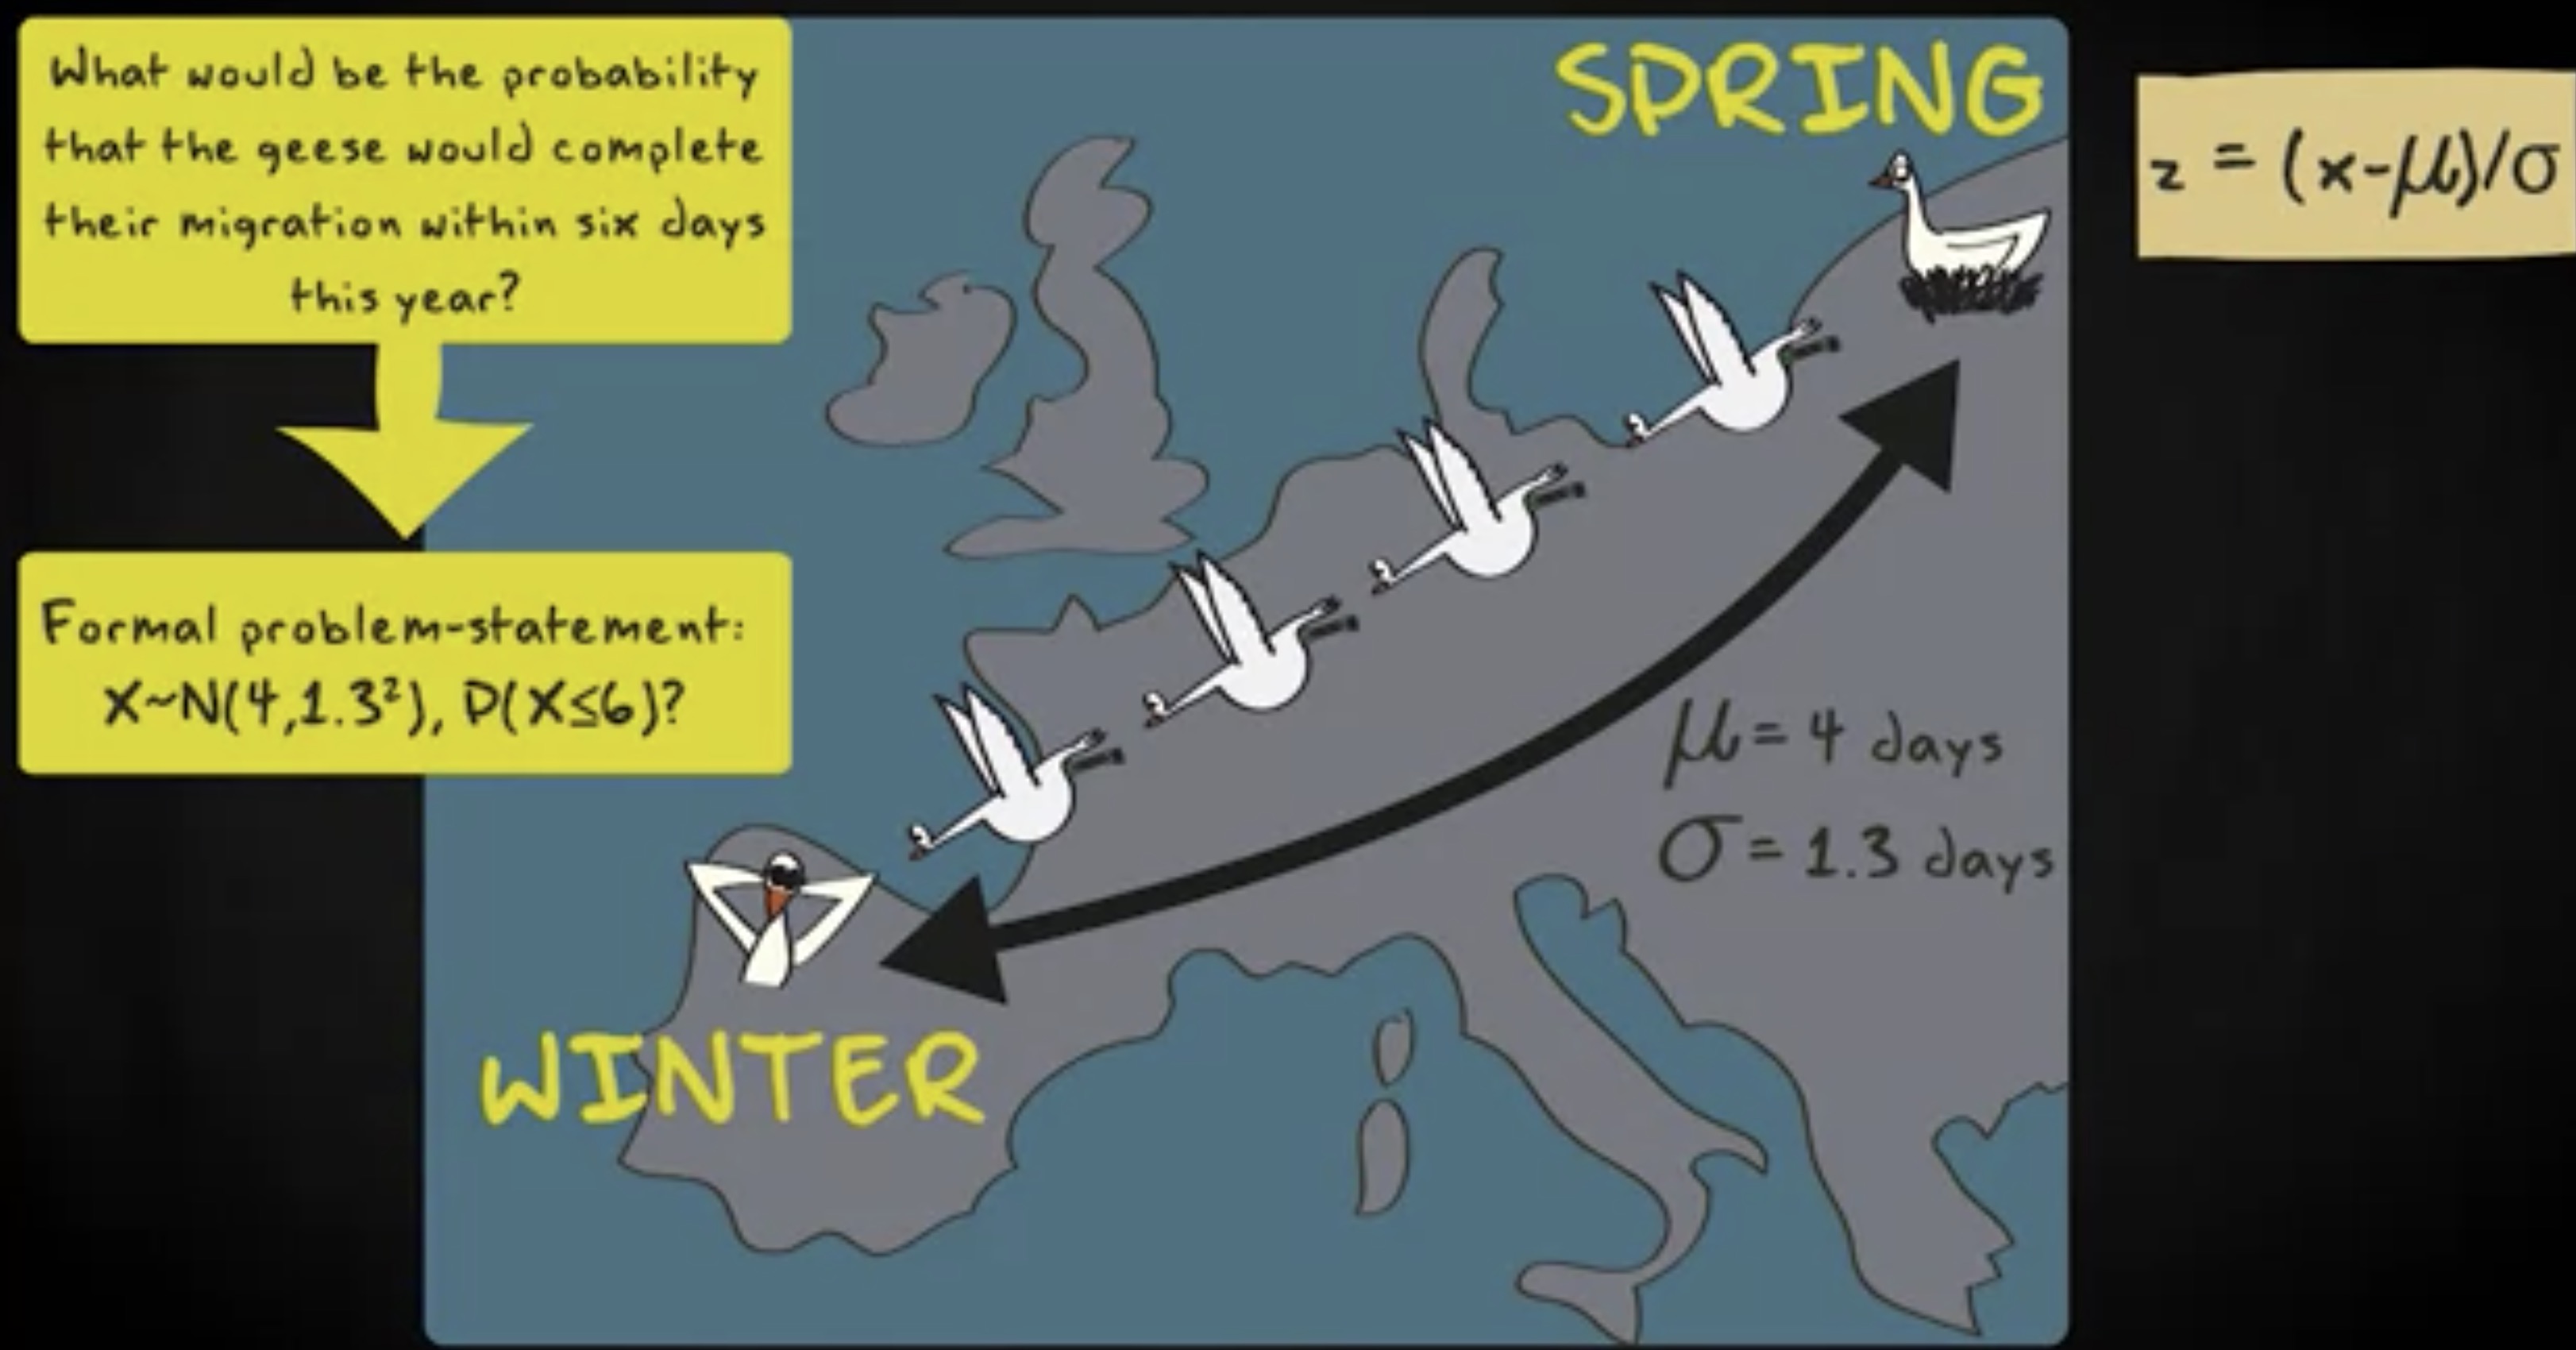 What would be the probability
that the geese would complete
their migration within six days
this year?
Formal problem-statement:
X~N(4,1.3²), P(X≤6)?
SPRING
z = (x-μ)/σ
μ = 4 days
σ = 1.3 days
WINTER